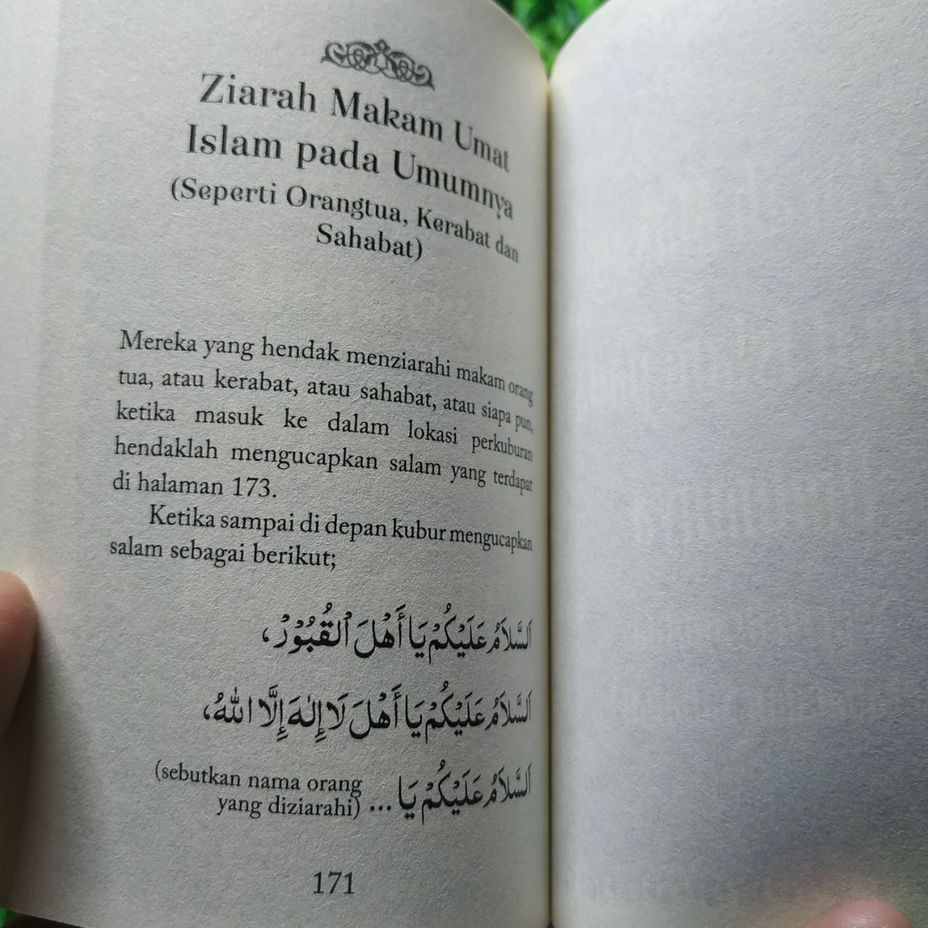 Ziarah Makam Umat
Islam pada Umumnya
(Seperti Orangtua, Kerabat dan
Sahabat)
Mereka yang hendak menziarahi makam orang
tua, atau kerabat, atau sahabat, atau siapa pun,
ketika masuk ke dalam lokasi perkuburan
hendaklah mengucapkan salam yang terdapat
di halaman 173.
Ketika sampai di depan kubur mengucapkan
salam sebagai berikut;
اَلسَّلَامُ عَلَيْكُمْ يَا أَهْلَ الْقُبُوْرْ،
اَلسَّلَامُ عَلَيْكُمْ يَا أَهْلَ لَا إِلٰهَ إِلَّا اللهُ،
اَلسَّلَامُ عَلَيْكُمْ يَا ... (sebutkan nama orang
yang diziarahi)
171